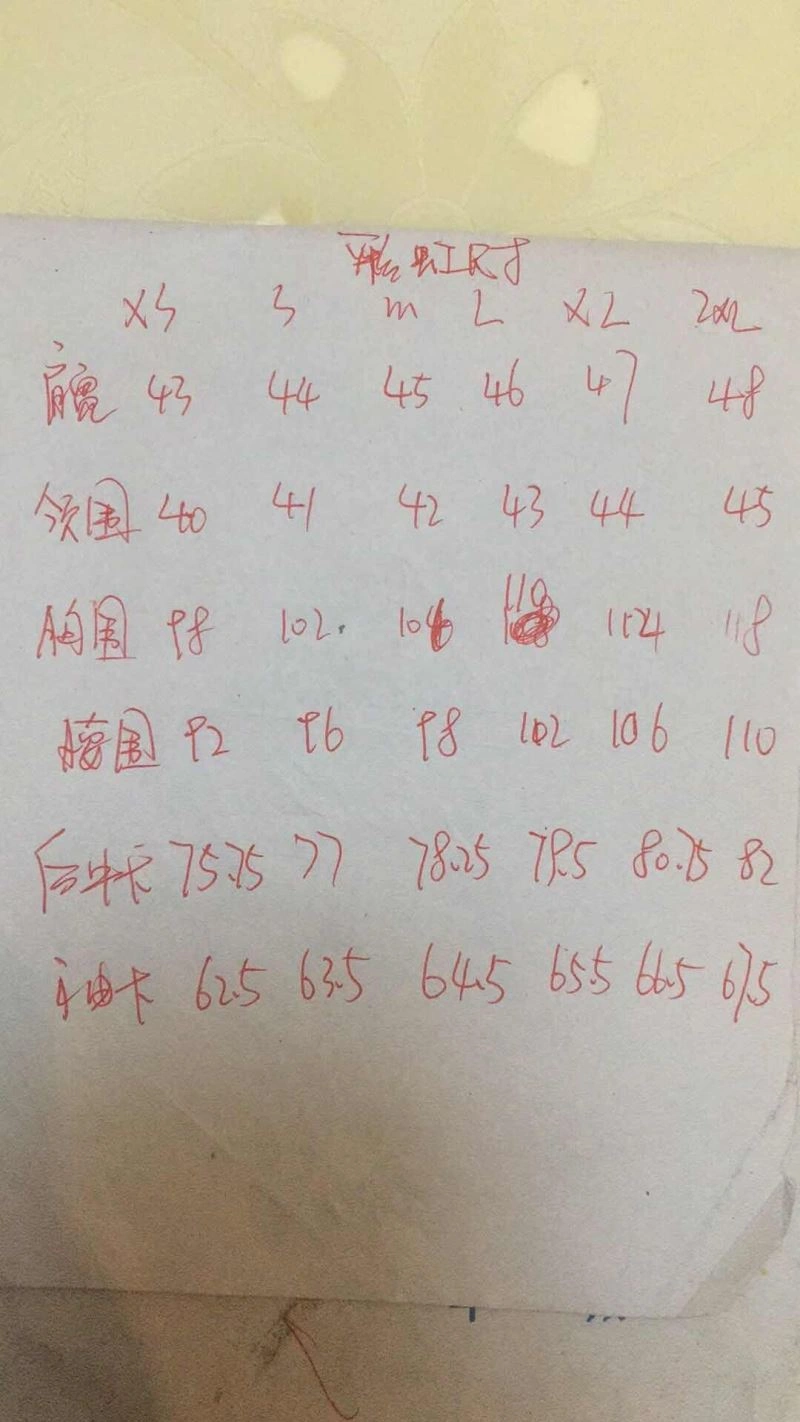 虹尺寸
XS S m L XL 2XL
肩宽 43 44 45 46 47 48
领围 40 41 42 43 44 45
胸围 98 102. 106 110 114 118
腰围 92 96 98 102 106 110
后中长 75.75 77 78.25 79.5 80.75 82
袖长 62.5 63.5 64.5 65.5 66.5 67.5